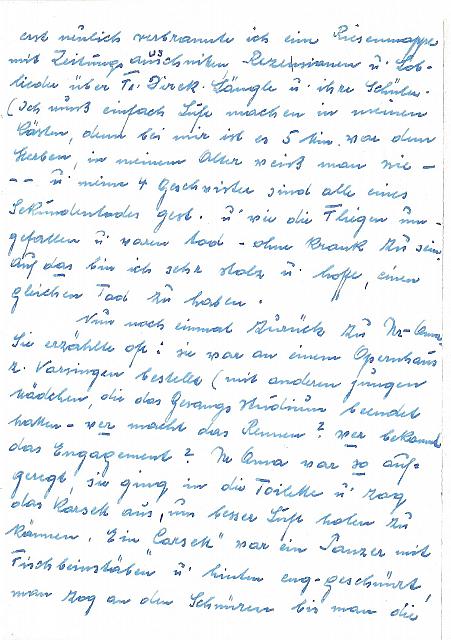 erst neulich verbrannte ich eine Riesenmappe
mit Zeitungsausschnitten Rezensionen u. Lob-
lieder über Fr. Direk. Längle u. ihre Schüler.
(Ich muß einfach Luft machen in meinen
Kästen, denn bei mir ist es 5 Min. vor dem
Sterben, in meinem Alter weiß man nie –
– – u. meine 4 Geschwister sind alle eines
Sekundentodes gest. u. wie die Fliegen um-
gefallen u. waren tod – ohne krank zu sein,
auf das bin ich sehr stolz u. hoffe, einen
gleichen Tod zu haben.
Nun noch einmal zurück zu Anna.
Sie erzählte oft: sie war an einem Opernhaus
z. Vorsingen bestellt (mit anderen jungen
Mädchen, die das Gesangsstudium beendet
hatten – wer macht das Rennen? wer bekommt
das Engagement? Anna war so auf-
geregt, sie ging in die Toilette u. zog
das Korsett aus, um besser Luft holen zu
können. Ein "Corsett" war ein Panzer mit
Fischbeinstäben u. hinten eng-geschnürt,
man zog an den Schnüren bis man die